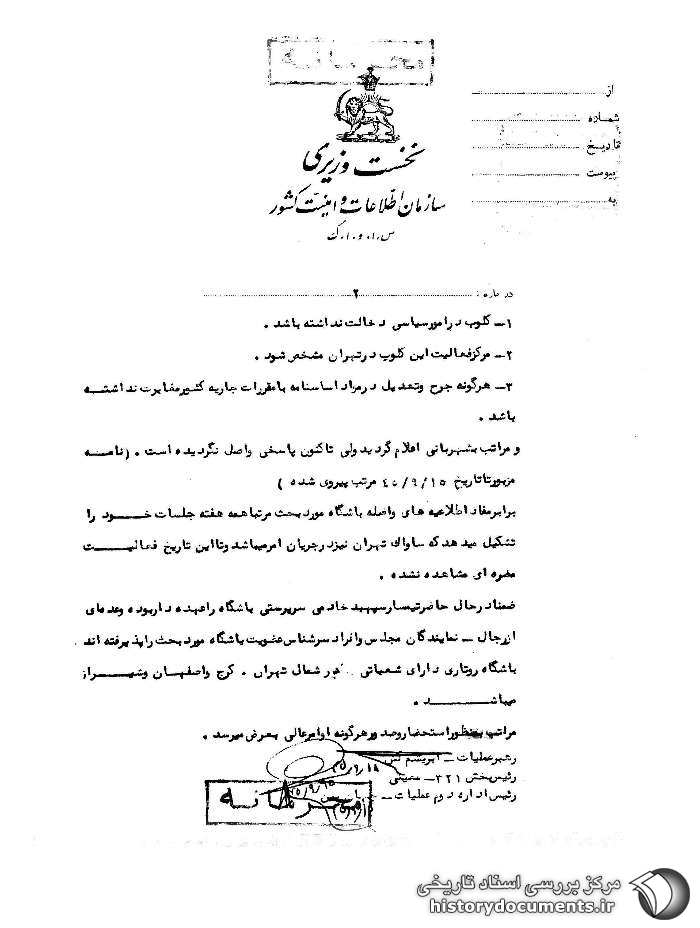 خیلی محرمانه
از
شماره
تاریخ
پیوست
به
نخست وزیری
سازمان اطلاعات و امنیت کشور
س.ا.و.ا.ک
درباره : ۲
۱- کلوب در امور سیاسی دخالت نداشته باشد .
۲- مرکز فعالیت این کلوب در تهران مشخص شود .
۳- هرگونه جرح وتعدیل در مواد اساسنامه با مقررات جاریه کشور مغایرت نداشته
باشد .
و مراتب بشهربانی اعلام گردید ولی تاکنون پاسخی واصل نگردیده است . (نامه
مزبور تا تاریخ ۴۵/۹/۱۵ مرتب پیروی شده )
برابر مفاد اطلاعیه های واصله باشگاه مورد بحث مرتبا همه هفته جلسات خود را
تشکیل میدهد که ساواک تهران نیز در جریان امر میباشد و تا این تاریخ فعالیت
مضره ای مشاهده نشده .
ضمنا در حال حاضر تیمسار سپهبد خادمی سرپرستی باشگاه را عهده دار بوده و عده ای
از رجال - نمایندگان مجلس و افراد سرشناس عضویت باشگاه مورد بحث را پذیرفته اند .
باشگاه روتاری دارای شعباتی در شمال تهران . کرج و اصفهان و شیراز
میباشد .
مراتب بمنظور استحضار و صدور هرگونه اوامر عالی بعرض میرسد .
رهبر عملیات - ابریشم
۴۵/۹/۱۸
رئیس بخش ۳۲۱ - معینی
رئیس اداره دوم عملیات -
محرمانه
مرکز بررسی اسناد تاریخی
historydocuments.ir